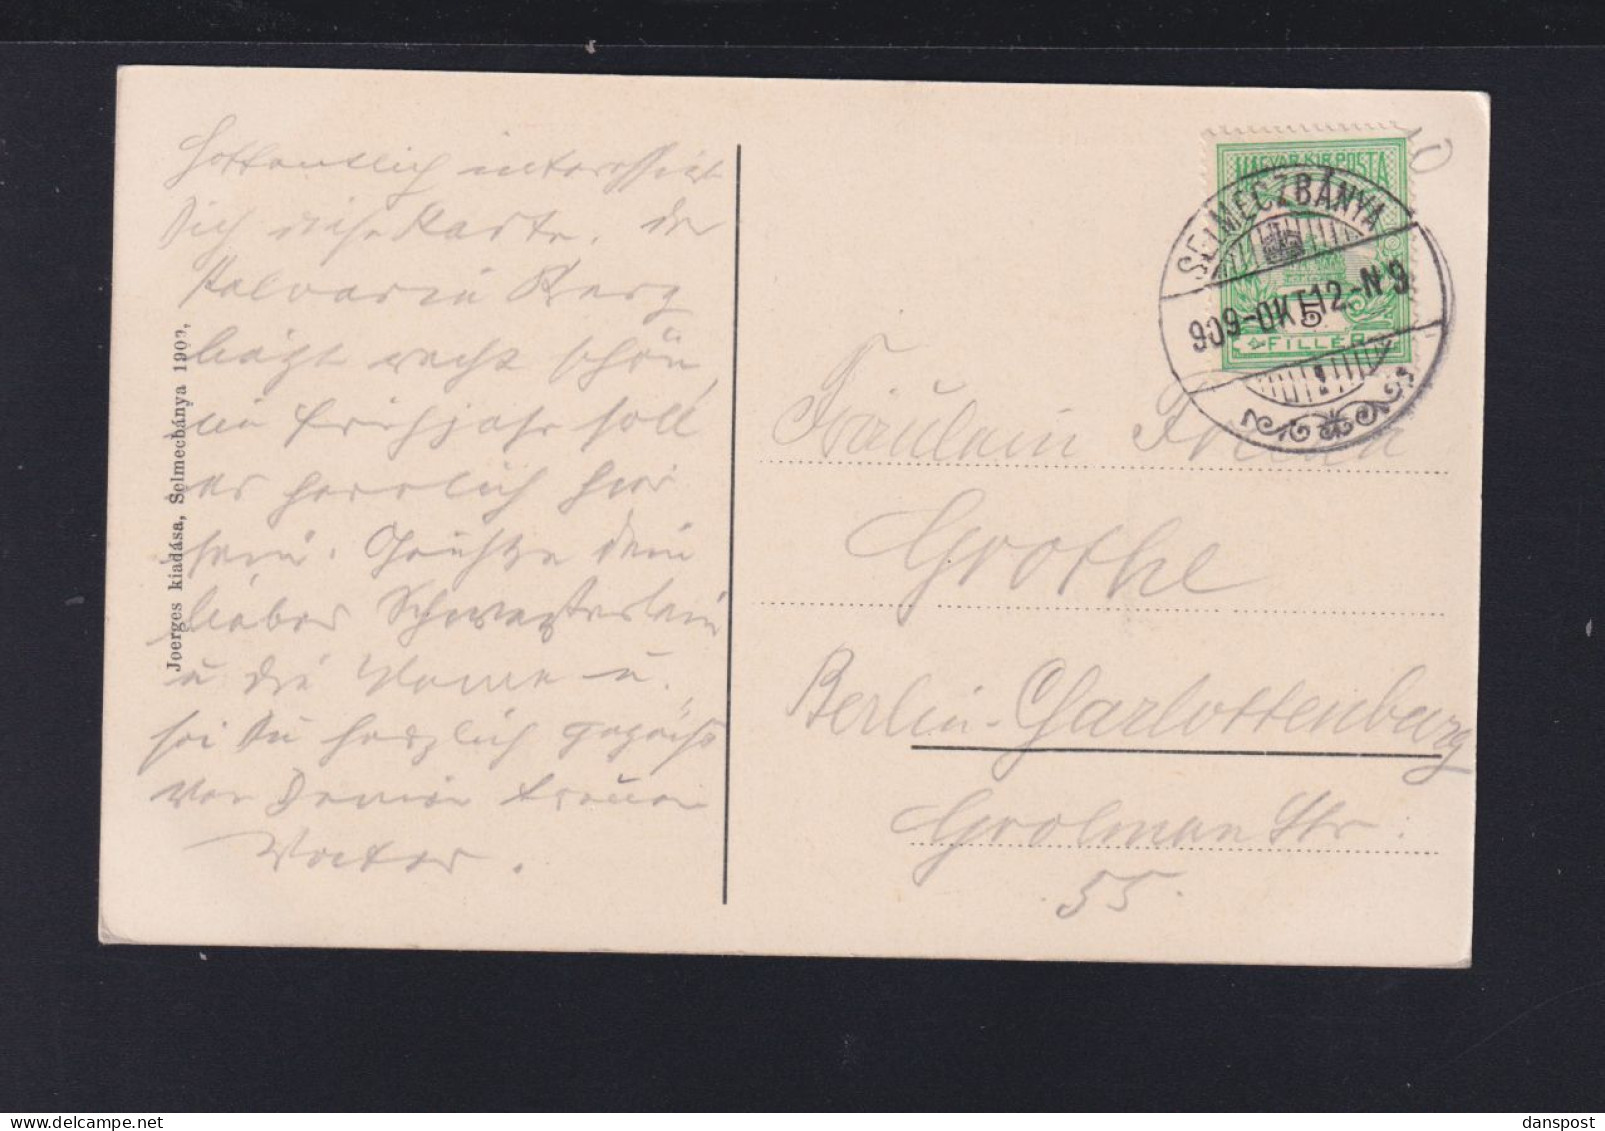 Hoffentlich interessiert
Dich diese Karte. Der
Kalvarien Berg
liegt recht schön,
im Frühjahr soll
es herrlich hier
sein. Grüße Dein
liebes Schwesterlein
u die Mama u.
sei Du herzlich gegrüßt
von Deinem treuen
Vater.
Joerges kiadása, Selmecbánya 1909.
MAGYAR KIR. POSTA
5
FILLÉR
SELMECZBÁNYA
909-OKT 12-N 9
10
Fräulein Frieda
Grothe
Berlin-Charlottenburg
Grolman Str.
55.
danspost